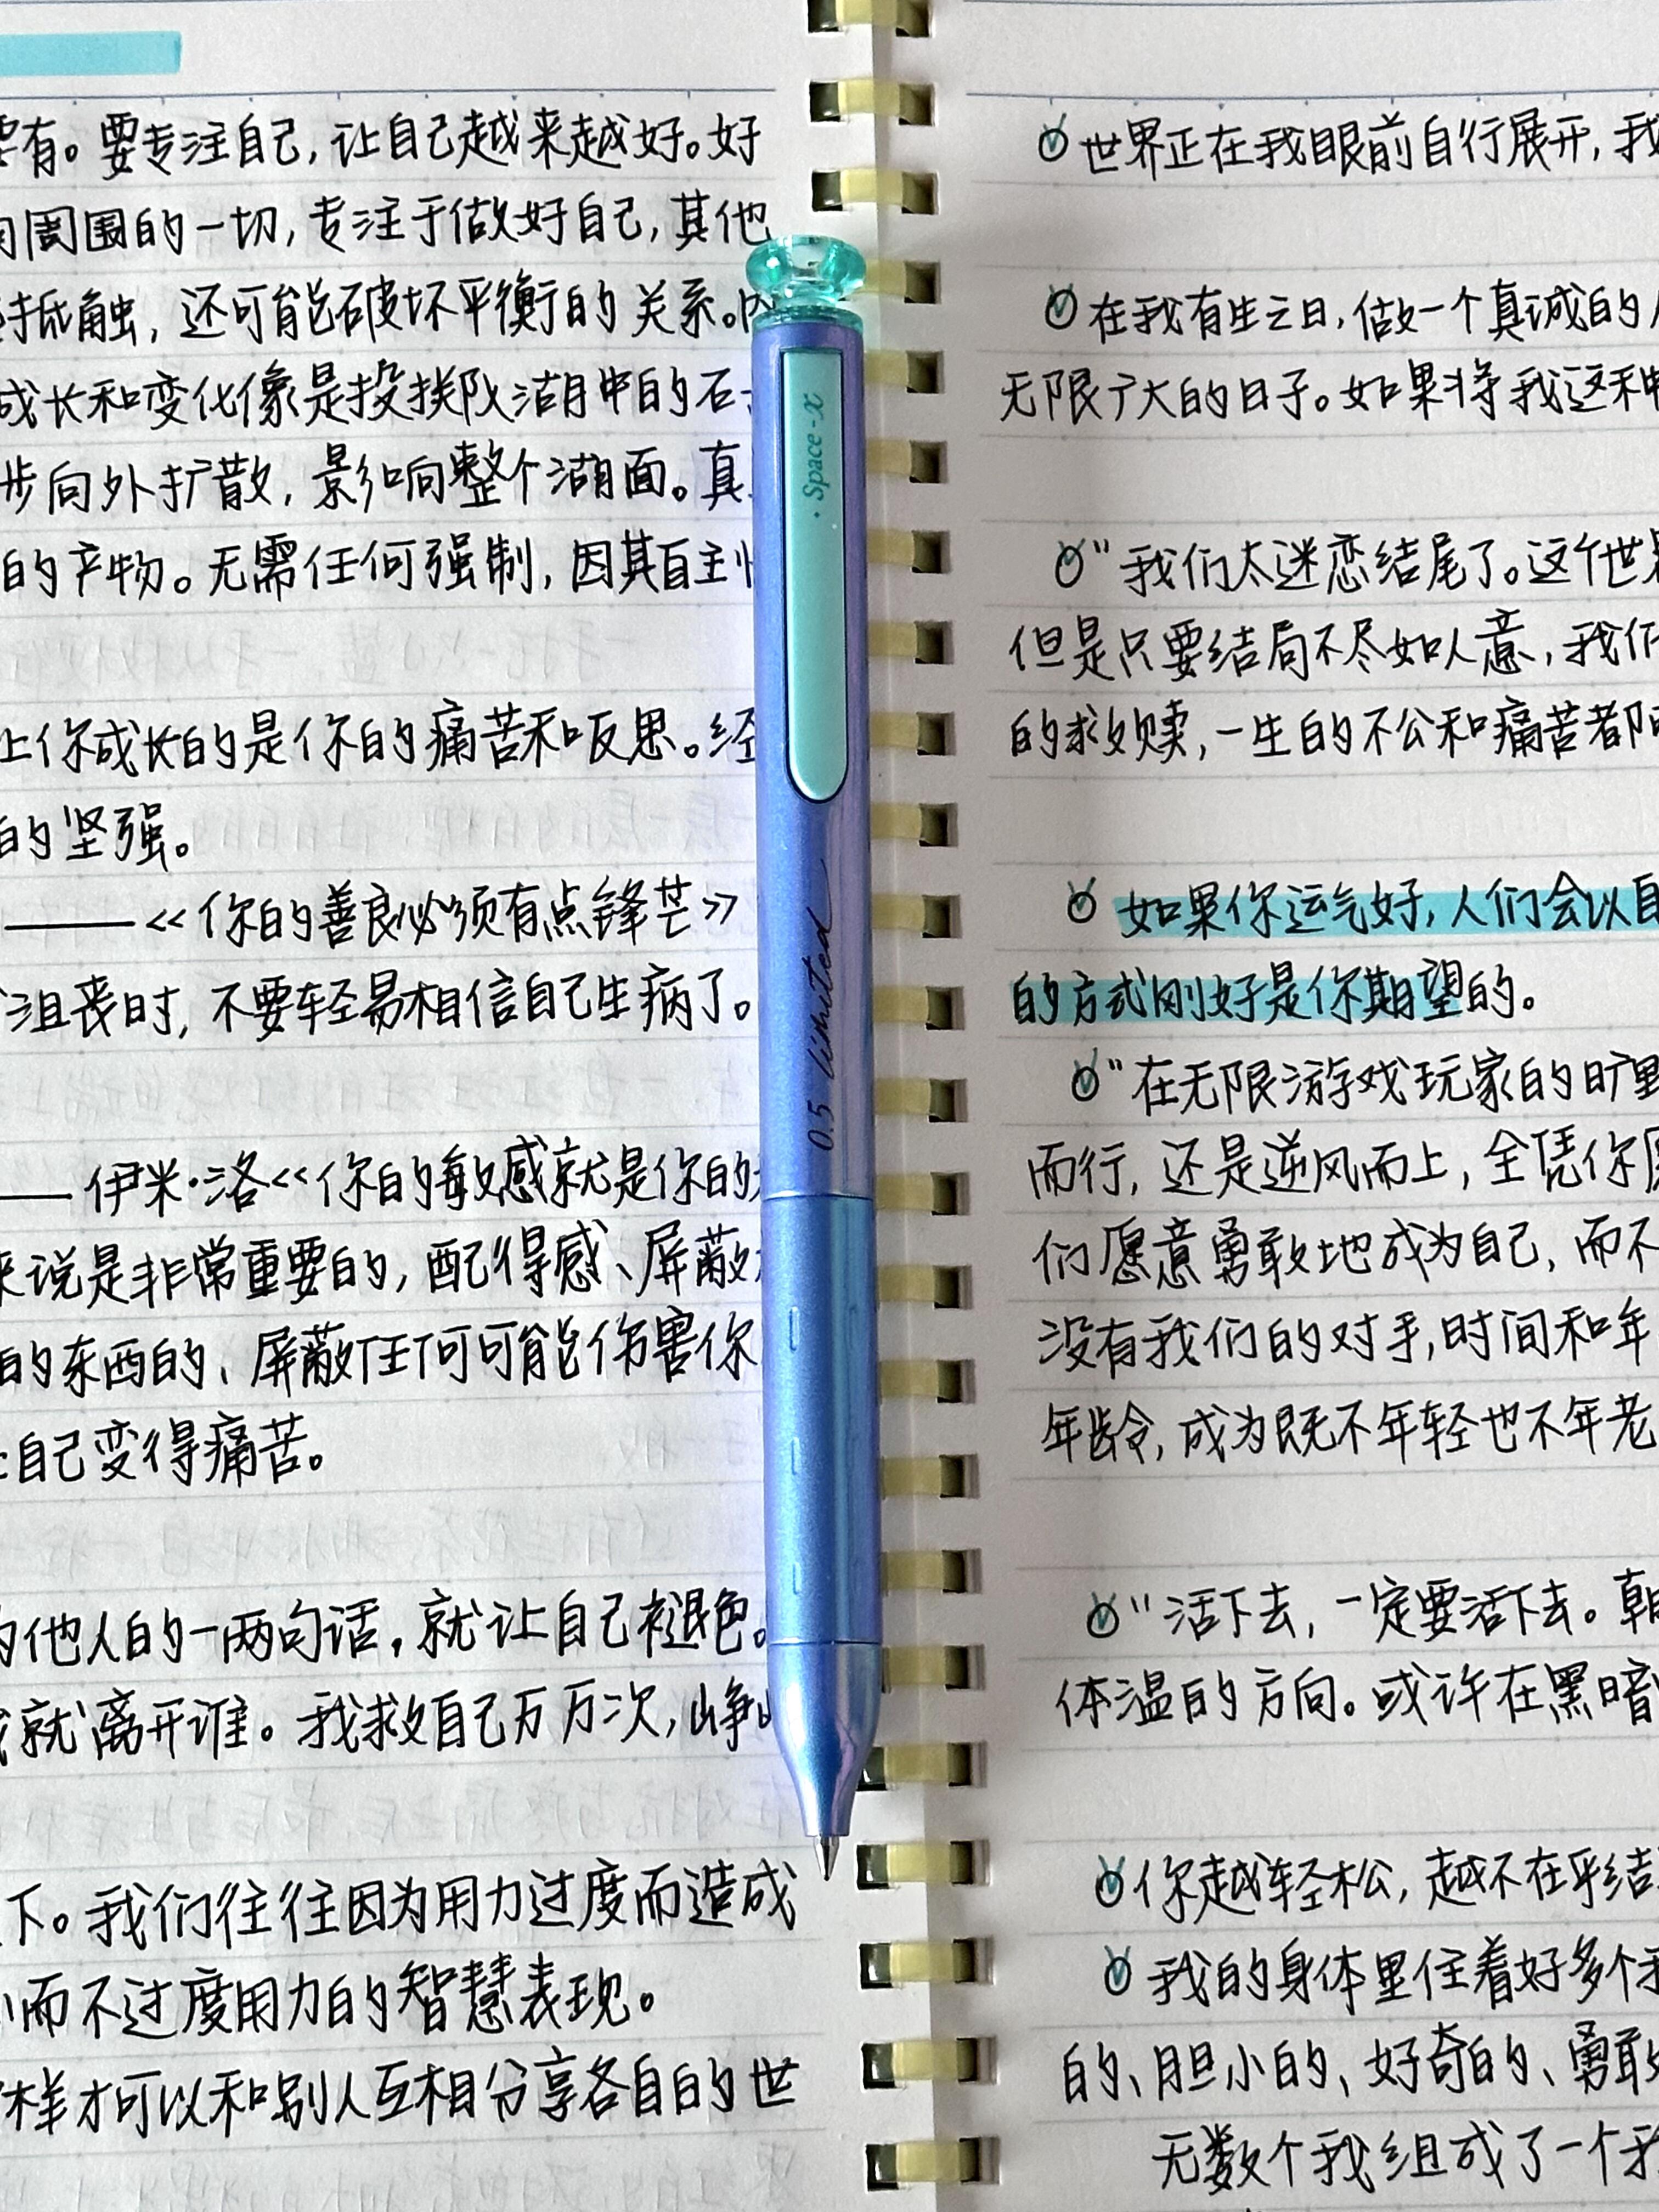 有。要专注自己,让自己越来越好。好
周围的一切,专注于做好自己,其他
抵触,还可能破坏平衡的关系。
成长和变化像是投掷队湖中的石
步向外扩散,影响整个湖面。真
的产物。无需任何强制,因其自主
你成长的是你的痛苦和反思。经
的坚强。
——《你的善良必须有点锋芒》
沮丧时,不要轻易相信自己生病了。
——伊米·洛《你的敏感就是你的
来说是非常重要的,配得感、屏蔽
的东西的、屏蔽任何可能伤害你
自己变得痛苦。
他人的一两句话,就让自己褪色。
就离开谁。我救自己万万次,峥
下。我们往往因为用力过度而造成
而不过度用力的智慧表现。
样才可以和别人互相分享各自的世
·Space-X
0.5 limited
世界正在我眼前自行展开,我
在我有生之日,做一个真诚的
无限广大的日子。如果将我这种
"我们太迷恋结尾了。这个世界
但是只要结局不尽如人意,我们
的救赎,一生的不公和痛苦都
如果你运气好,人们会以自
的方式刚好是你期望的。
"在无限游戏玩家的旷野
而行,还是逆风而上,全凭你
们愿意勇敢地成为自己,而不
没有我们的对手,时间和年
年龄,成为既不年轻也不年老
"活下去,一定要活下去。朝
体温的方向。或许在黑暗
你越轻松,越不在乎结
我的身体里住着好多个我
的、胆小的、好奇的、勇敢
无数个我组成了一个我